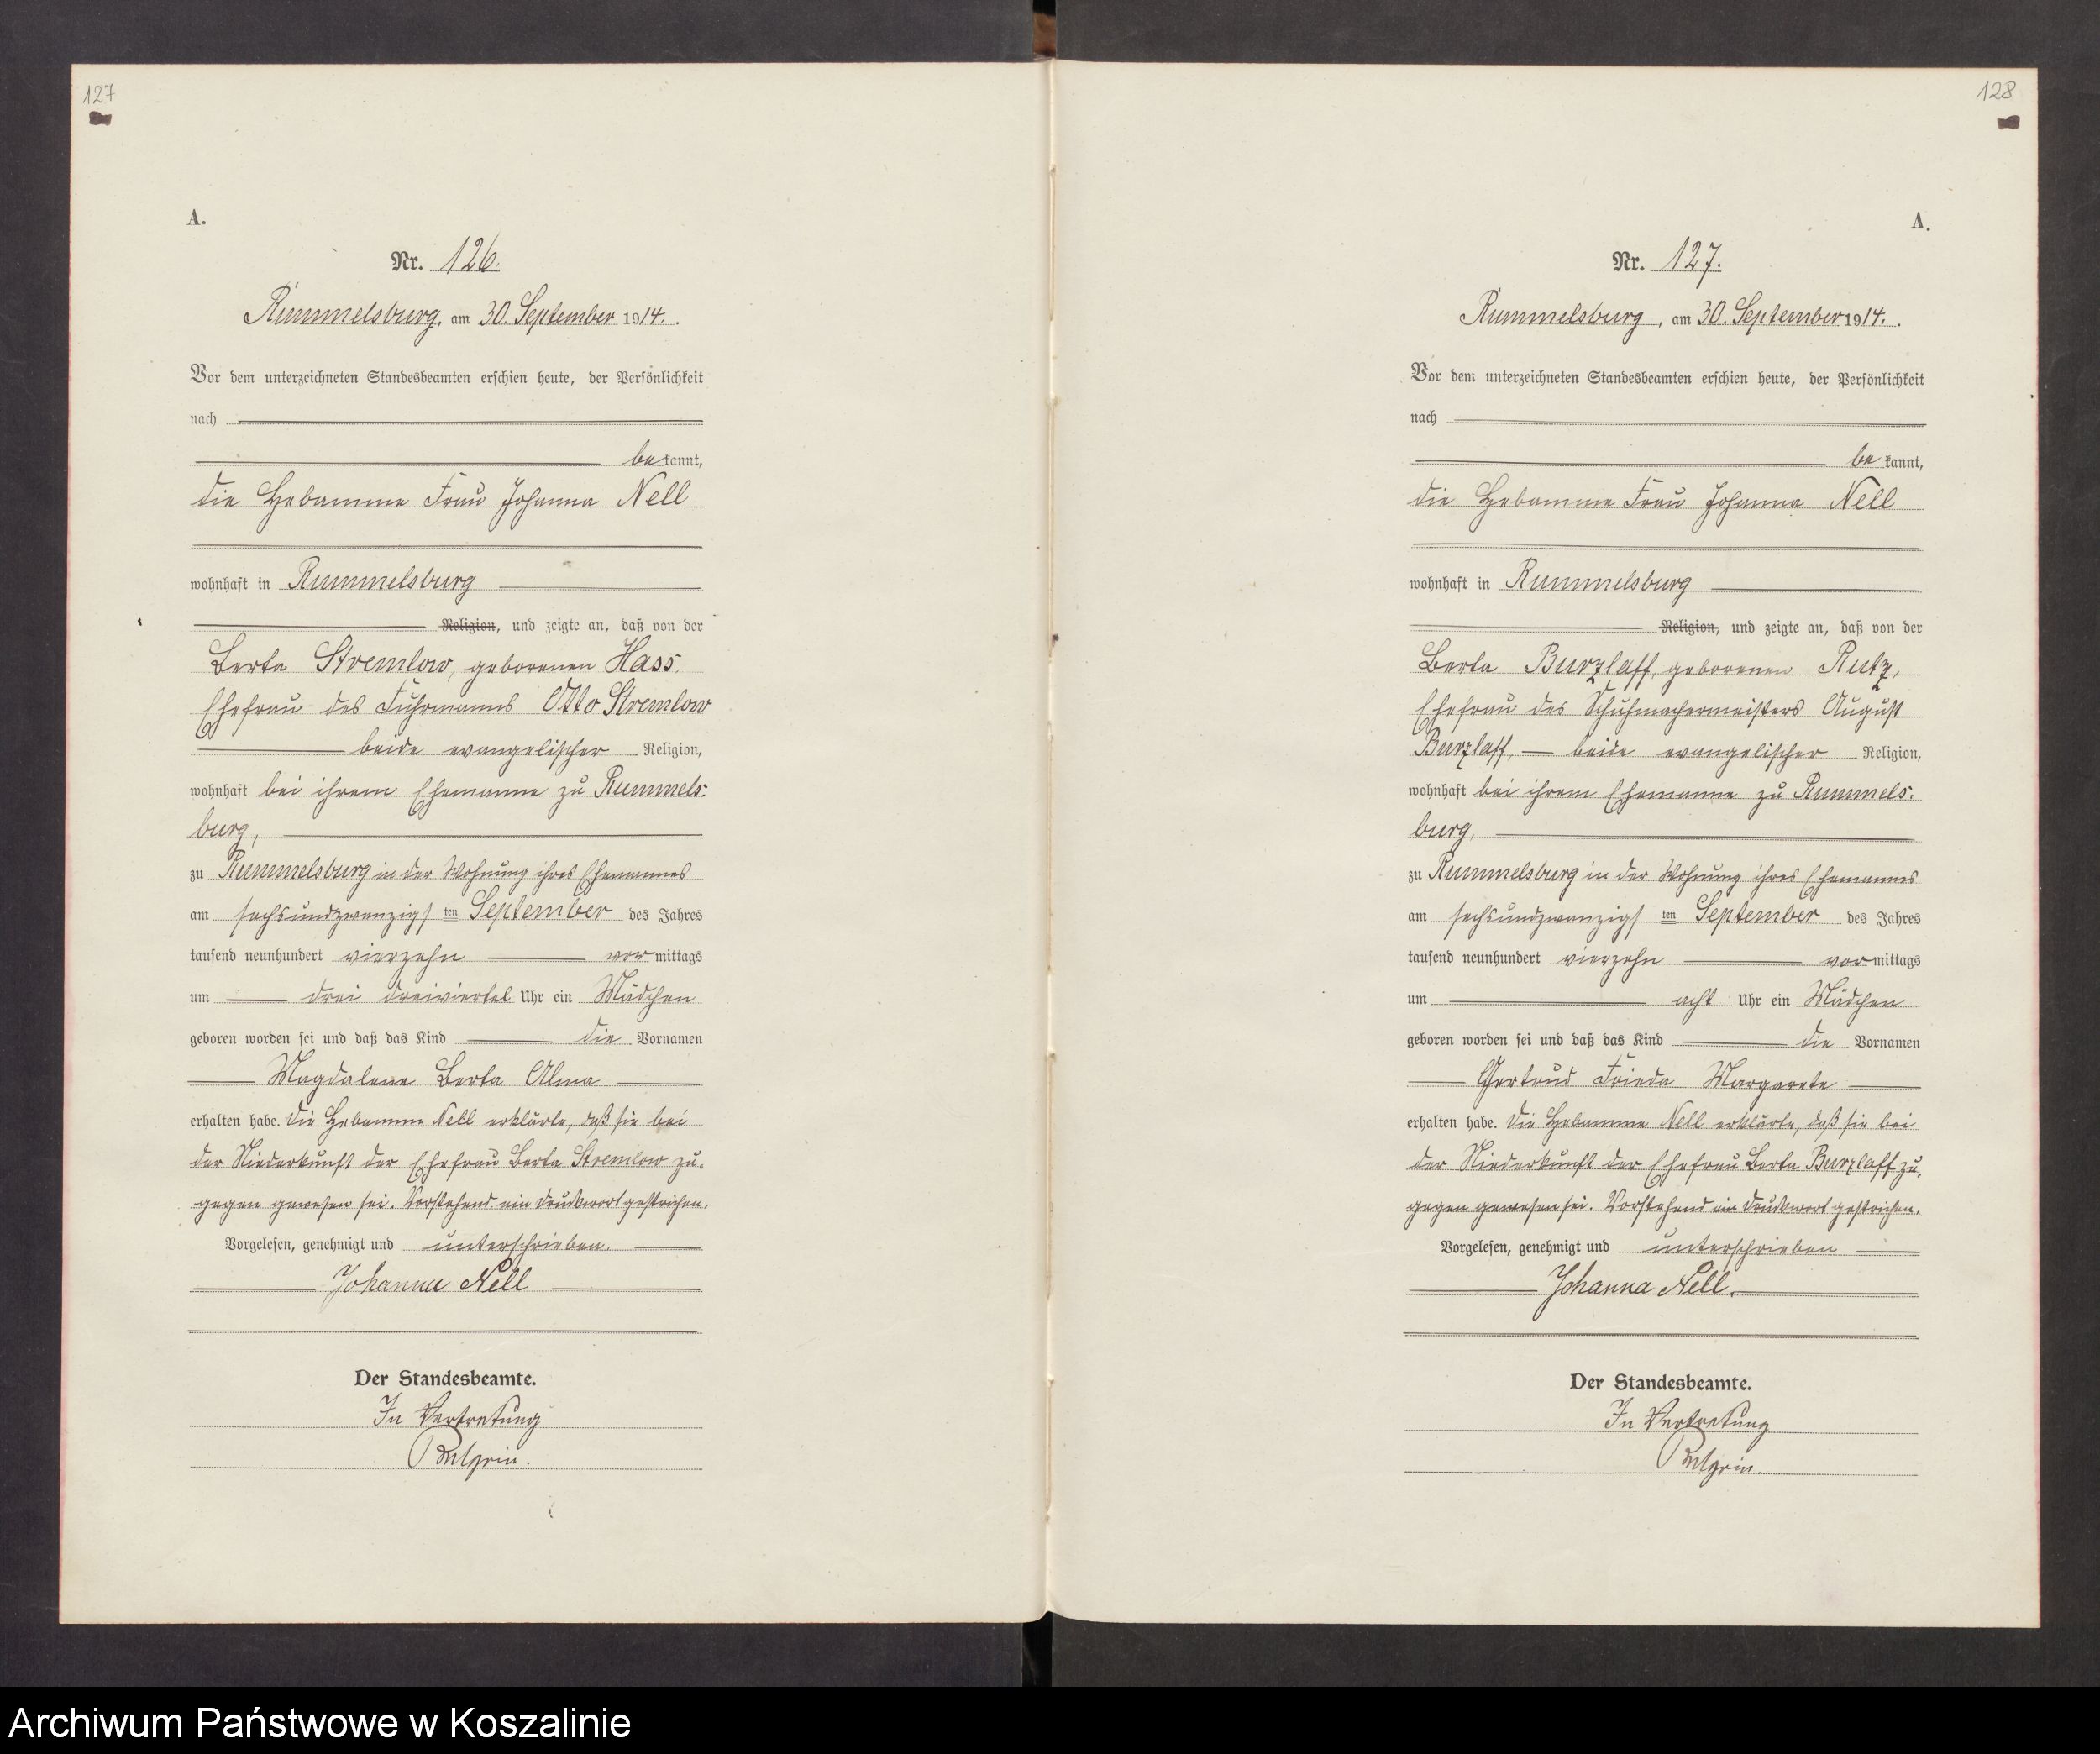 127
A.
Nr. 126.
Rummelsburg, am 30. September 1914.
Vor dem unterzeichneten Standesbeamten erschien heute, der Persönlichkeit
nach
bekannt,
die Hebamme Frau Johanna Nell
wohnhaft in Rummelsburg
Religion, und zeigte an, daß von der
Berta Stremlow, geborenen Hass,
Ehefrau des Fuhrmanns Otto Stremlow
beide evangelischer Religion,
wohnhaft bei ihrem Ehemanne zu Rummels-
burg,
zu Rummelsburg in der Wohnung ihres Ehemannes
am sechsundzwanzigsten September des Jahres
tausend neunhundert vierzehn vormittags
um drei dreiviertel Uhr ein Mädchen
geboren worden sei und daß das Kind die Vornamen
Magdalene Berta Alma
erhalten habe. Die Hebamme Nell erklärte, daß sie bei
der Niederkunft der Ehefrau Berta Stremlow zu-
gegen gewesen sei. Vorstehend ein Druckwort gestrichen.
Vorgelesen, genehmigt und unterschrieben.
Johanna Nell
Der Standesbeamte.
In Vertretung
128
A.
Nr. 127.
Rummelsburg, am 30. September 1914.
Vor dem unterzeichneten Standesbeamten erschien heute, der Persönlichkeit
nach
bekannt,
die Hebamme Frau Johanna Nell
wohnhaft in Rummelsburg
Religion, und zeigte an, daß von der
Berta Burzlaff, geborenen Rutz,
Ehefrau des Schuhmachermeisters August
Burzlaff, beide evangelischer Religion,
wohnhaft bei ihrem Ehemanne zu Rummels-
burg,
zu Rummelsburg in der Wohnung ihres Ehemannes
am sechsundzwanzigsten September des Jahres
tausend neunhundert vierzehn vormittags
um acht Uhr ein Mädchen
geboren worden sei und daß das Kind die Vornamen
Gertrud Frieda Margarete
erhalten habe. Die Hebamme Nell erklärte, daß sie bei
der Niederkunft der Ehefrau Berta Burzlaff zu-
gegen gewesen sei. Vorstehend ein Druckwort gestrichen.
Vorgelesen, genehmigt und unterschrieben
Johanna Nell.
Der Standesbeamte.
In Vertretung
Archiwum Państwowe w Koszalinie